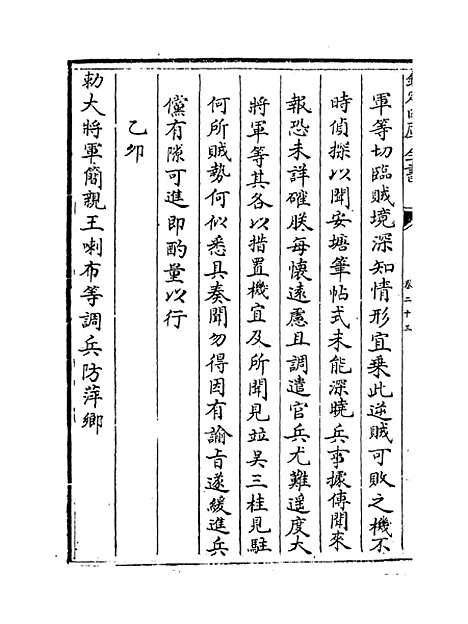 欽定四庫全書
卷二十三
軍等切臨賊境深知情形宜乗此逆賊可敗之機不
時偵探以聞安塘筆帖式未能深曉兵事據傳聞來
報恐未詳確朕每懷遠慮且調遣官兵尤難遥度大
將軍等其各以措置機宜及所聞見竝吴三桂見駐
何所賊勢何似悉具奏聞勿得因有諭旨遂緩進兵
儻有隙可進即酌量以行
乙夘
勅大將軍簡親王喇布等調兵防萍鄉